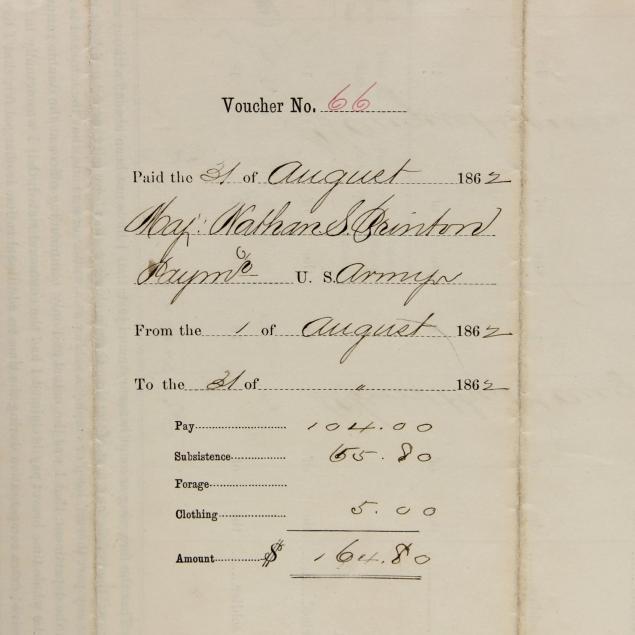 Voucher No. 66
Paid the 31 of August 1862
Maj: Nathan S. Brinton
Paymr U. S. Army
From the 1 of August 1862
To the 31 of " 1862
Pay 104.00
Subsistence 55.80
Forage
Clothing 5.00
Amount $ 164.80